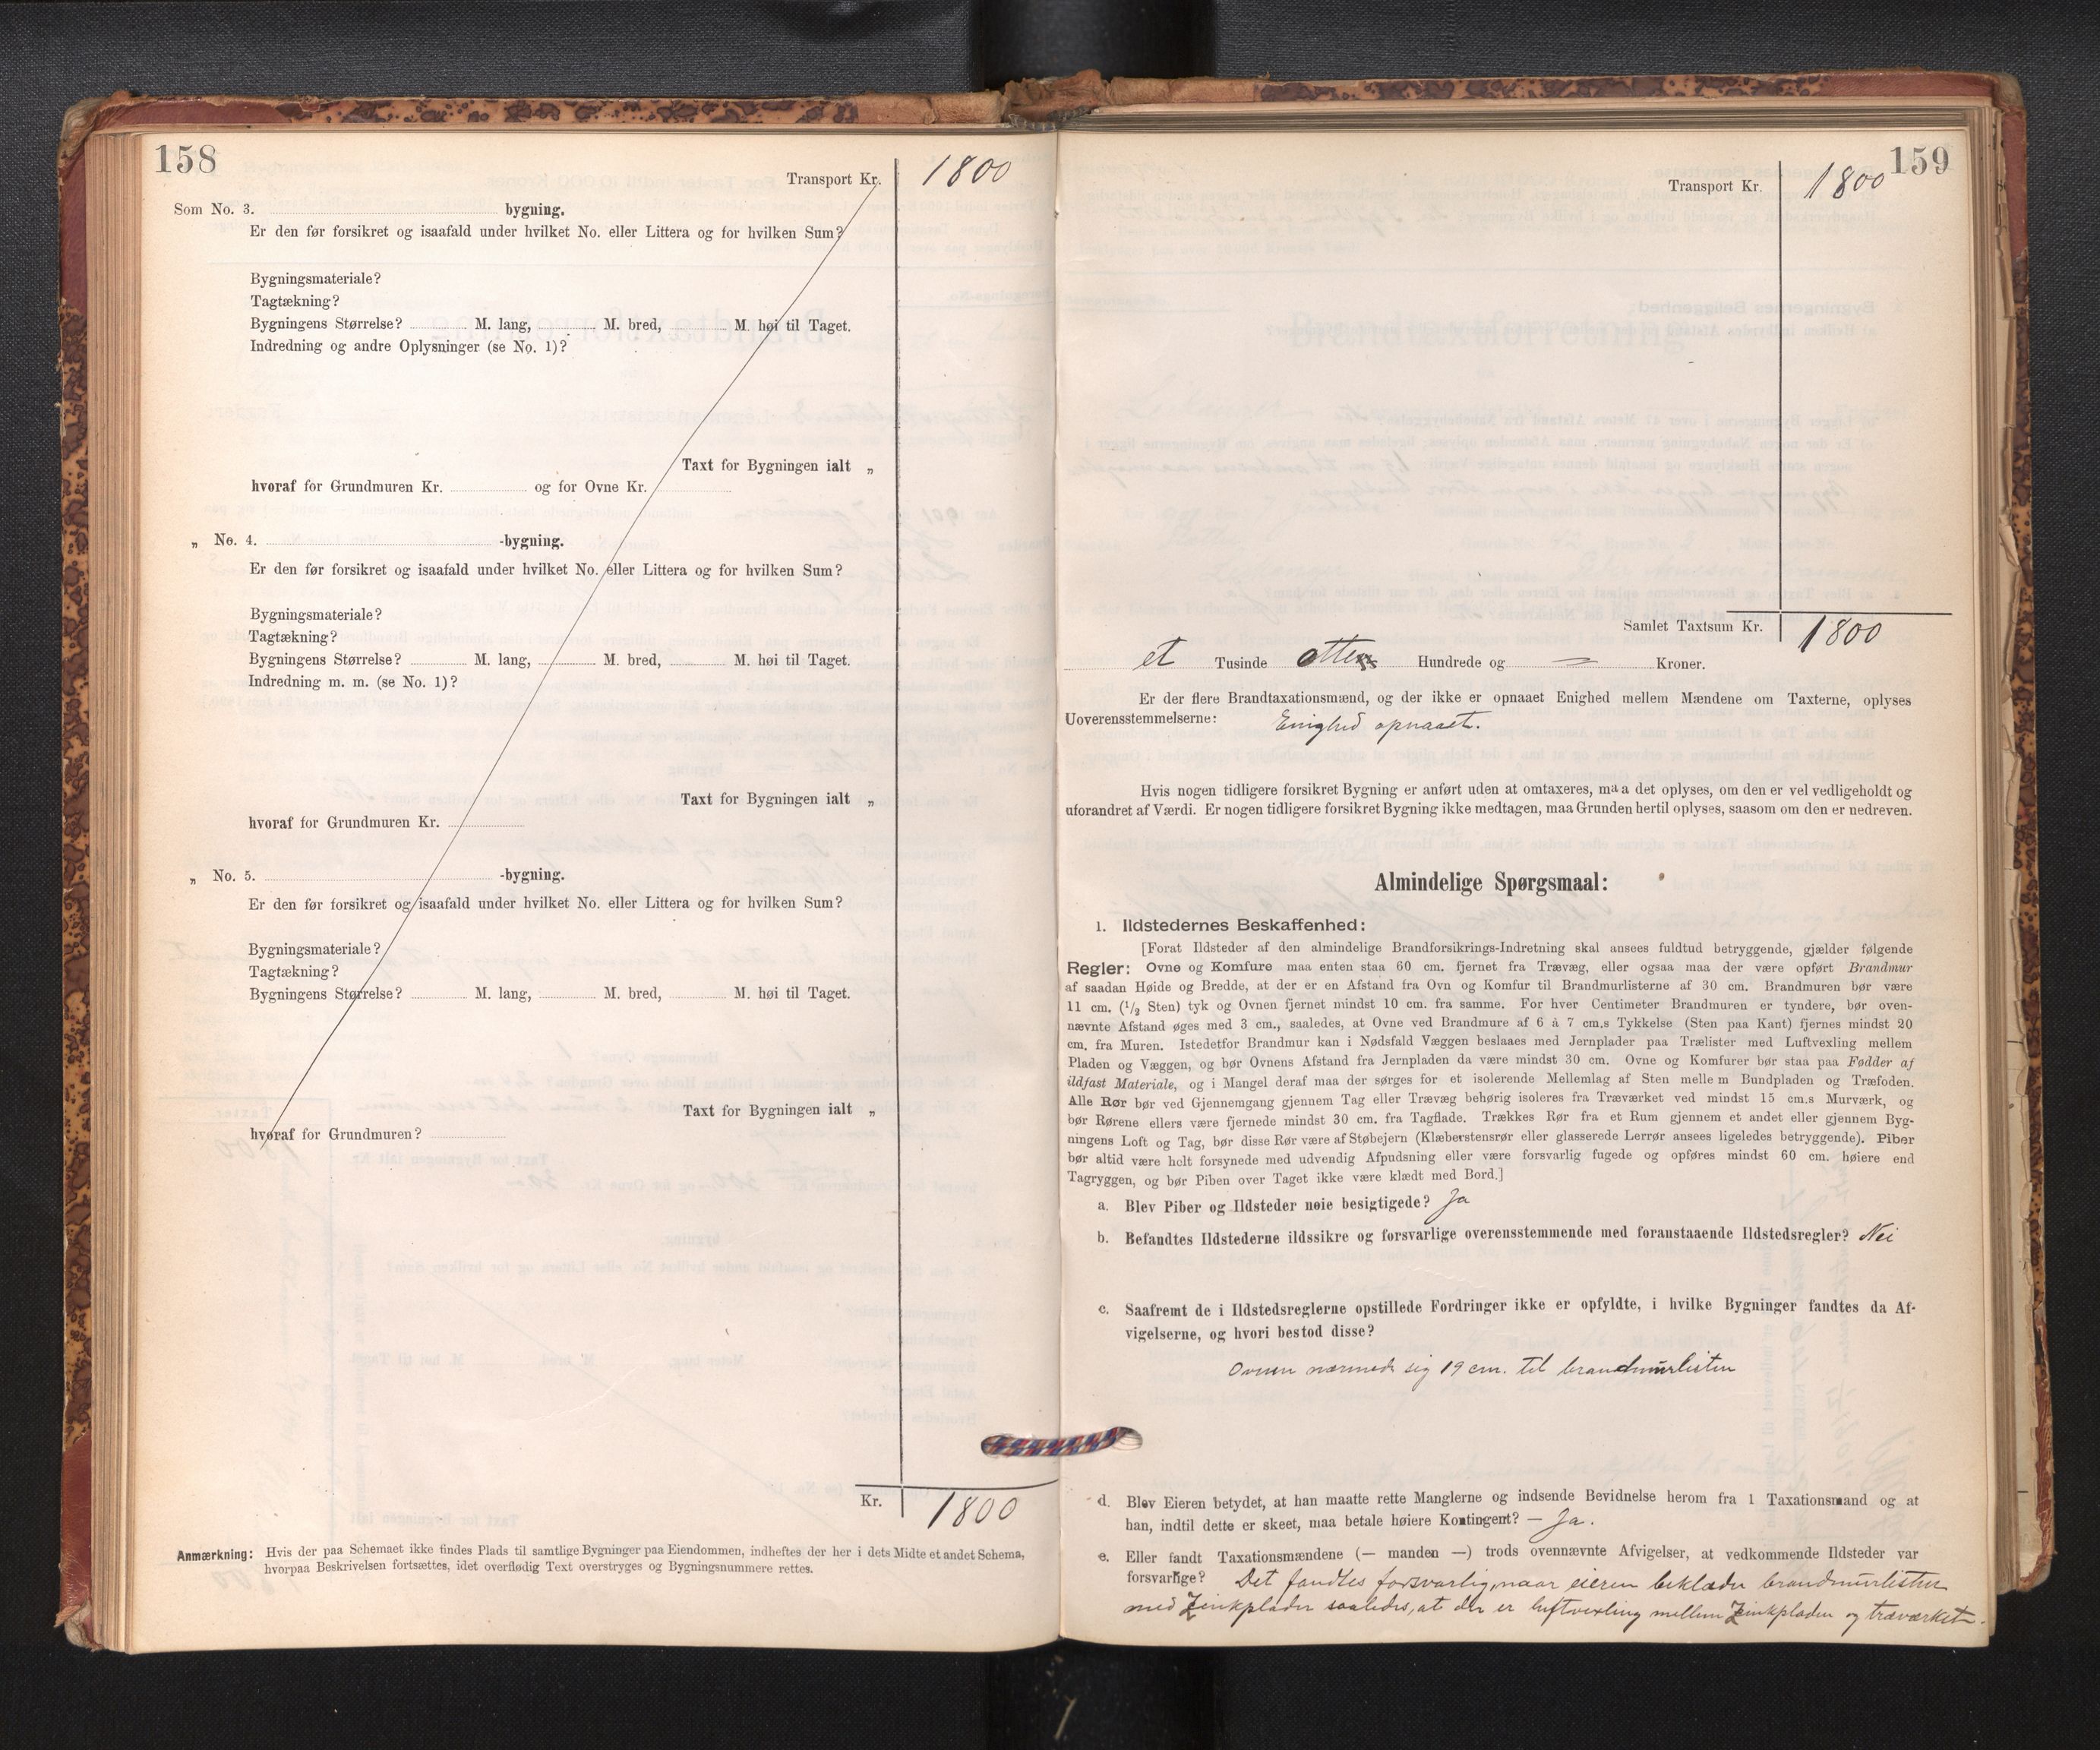 158
Transport Kr. 1800
Som No. 3. bygning.
Er den før forsikret og isaafald under hvilket No. eller Littera og for hvilken Sum?
Bygningsmateriale?
Tagtækning?
Bygningens Størrelse? M. lang, M. bred, M. høi til Taget.
Indredning og andre Oplysninger (se No. 1)?
Taxt for Bygningen ialt „
hvoraf for Grundmuren Kr. og for Ovne Kr.
„ No. 4. -bygning.
Er den før forsikret og isaafald under hvilket No. eller Littera og for hvilken Sum?
Bygningsmateriale?
Tagtækning?
Bygningens Størrelse? M. lang, M. bred, M. høi til Taget.
Indredning m. m. (se No. 1)?
Taxt for Bygningen ialt „
hvoraf for Grundmuren Kr.
„ No. 5. -bygning.
Er den før forsikret og isaafald under hvilket No. eller Littera og for hvilken Sum?
Bygningsmateriale?
Tagtækning?
Bygningens Størrelse? M. lang, M. bred, M. høi til Taget.
Taxt for Bygningen ialt „
hvoraf for Grundmuren?
Kr. 1800
Anmærkning: Hvis der paa Schemaet ikke findes Plads til samtlige Bygninger paa Eiendommen, indheftes der her i dets Midte et andet Schema,
hvorpaa Beskrivelsen fortsættes, idet overflødig Text overstryges og Bygningsnummere rettes.
159
Transport Kr. 1800
Samlet Taxtsum Kr. 1800
et Tusinde otte Hundrede og — Kroner.
Er der flere Brandtaxationsmænd, og der ikke er opnaaet Enighed mellem Mændene om Taxterne, oplyses
Uoverensstemmelserne: Enighed opnaaet.
Hvis nogen tidligere forsikret Bygning er anført uden at omtaxeres, maa det oplyses, om den er vel vedligeholdt og
uforandret af Værdi. Er nogen tidligere forsikret Bygning ikke medtagen, maa Grunden hertil oplyses, saasom om den er nedreven.
Almindelige Spørgsmaal:
1. Ildstedernes Beskaffenhed:
[Forat Ildsteder af den almindelige Brandforsikrings-Indretning skal ansees fuldtud betryggende, gjælder følgende
Regler: Ovne og Komfure maa enten staa 60 cm. fjernet fra Trævæg, eller ogsaa maa der være opført Brandmur
af saadan Høide og Bredde, at der er en Afstand fra Ovn og Komfur til Brandmurlisterne af 30 cm. Brandmuren bør være
11 cm. (1/2 Sten) tyk og Ovnen fjernet mindst 10 cm. fra samme. For hver Centimeter Brandmuren er tyndere, bør oven-
nævnte Afstand øges med 3 cm., saaledes, at Ovne ved Brandmure af 6 à 7 cm.s Tykkelse (Sten paa Kant) fjernes mindst 20
cm. fra Muren. Istedetfor Brandmur kan i Nødsfald Væggen beslaaes med Jernplader paa Trælister med Luftvexling mellem
Pladen og Væggen, og bør Ovnens Afstand fra Jernpladen da være mindst 30 cm. Ovne og Komfurer bør staa paa Fødder af
ildfast Materiale, og i Mangel deraf maa der sørges for et isolerende Mellemlag af Sten mellem Bundpladen og Træfoden.
Alle Rør bør ved Gjennemgang gjennem Tag eller Trævæg behørig isoleres fra Træværket ved mindst 15 cm.s Murværk, og
bør Rørene ellers være fjernede mindst 30 cm. fra Tagflade. Trækkes Rør fra et Rum gjennem et andet eller gjennem Byg-
ningens Loft og Tag, bør disse Rør være af Støbejern (Klæberstensrør eller glasserede Lerrør ansees ligeledes betryggende). Piber
bør altid være helt forsynede med udvendig Afpudsning eller være forsvarlig fugede og opføres mindst 60 cm. høiere end
Tagryggen, og bør Piben over Taget ikke være klædt med Bord.]
a. Blev Piber og Ildsteder nøie besigtigede? Ja
b. Befandtes Ildstederne ildssikre og forsvarlige overensstemmende med foranstaaende Ildstedsregler? Nei
c. Saafremt de i Ildstedsreglerne opstillede Fordringer ikke er opfyldte, i hvilke Bygninger fandtes da Af-
vigelserne, og hvori bestod disse?
Ovnen nærmede sig 19 cm. til brandmurlisten
d. Blev Eieren betydet, at han maatte rette Manglerne og indsende Bevidnelse herom fra 1 Taxationsmand og at
han, indtil dette er skeet, maa betale høiere Kontingent? — Ja.
e. Eller fandt Taxationsmændene (— manden —) trods ovennævnte Afvigelser, at vedkommende Ildsteder var
forsvarlige? Det fandtes forsvarlig, naar eieren beklæder brandmurlisten
med Zinkplader saaledes, at der er luftvexling mellem Zinkpladen og træværket.